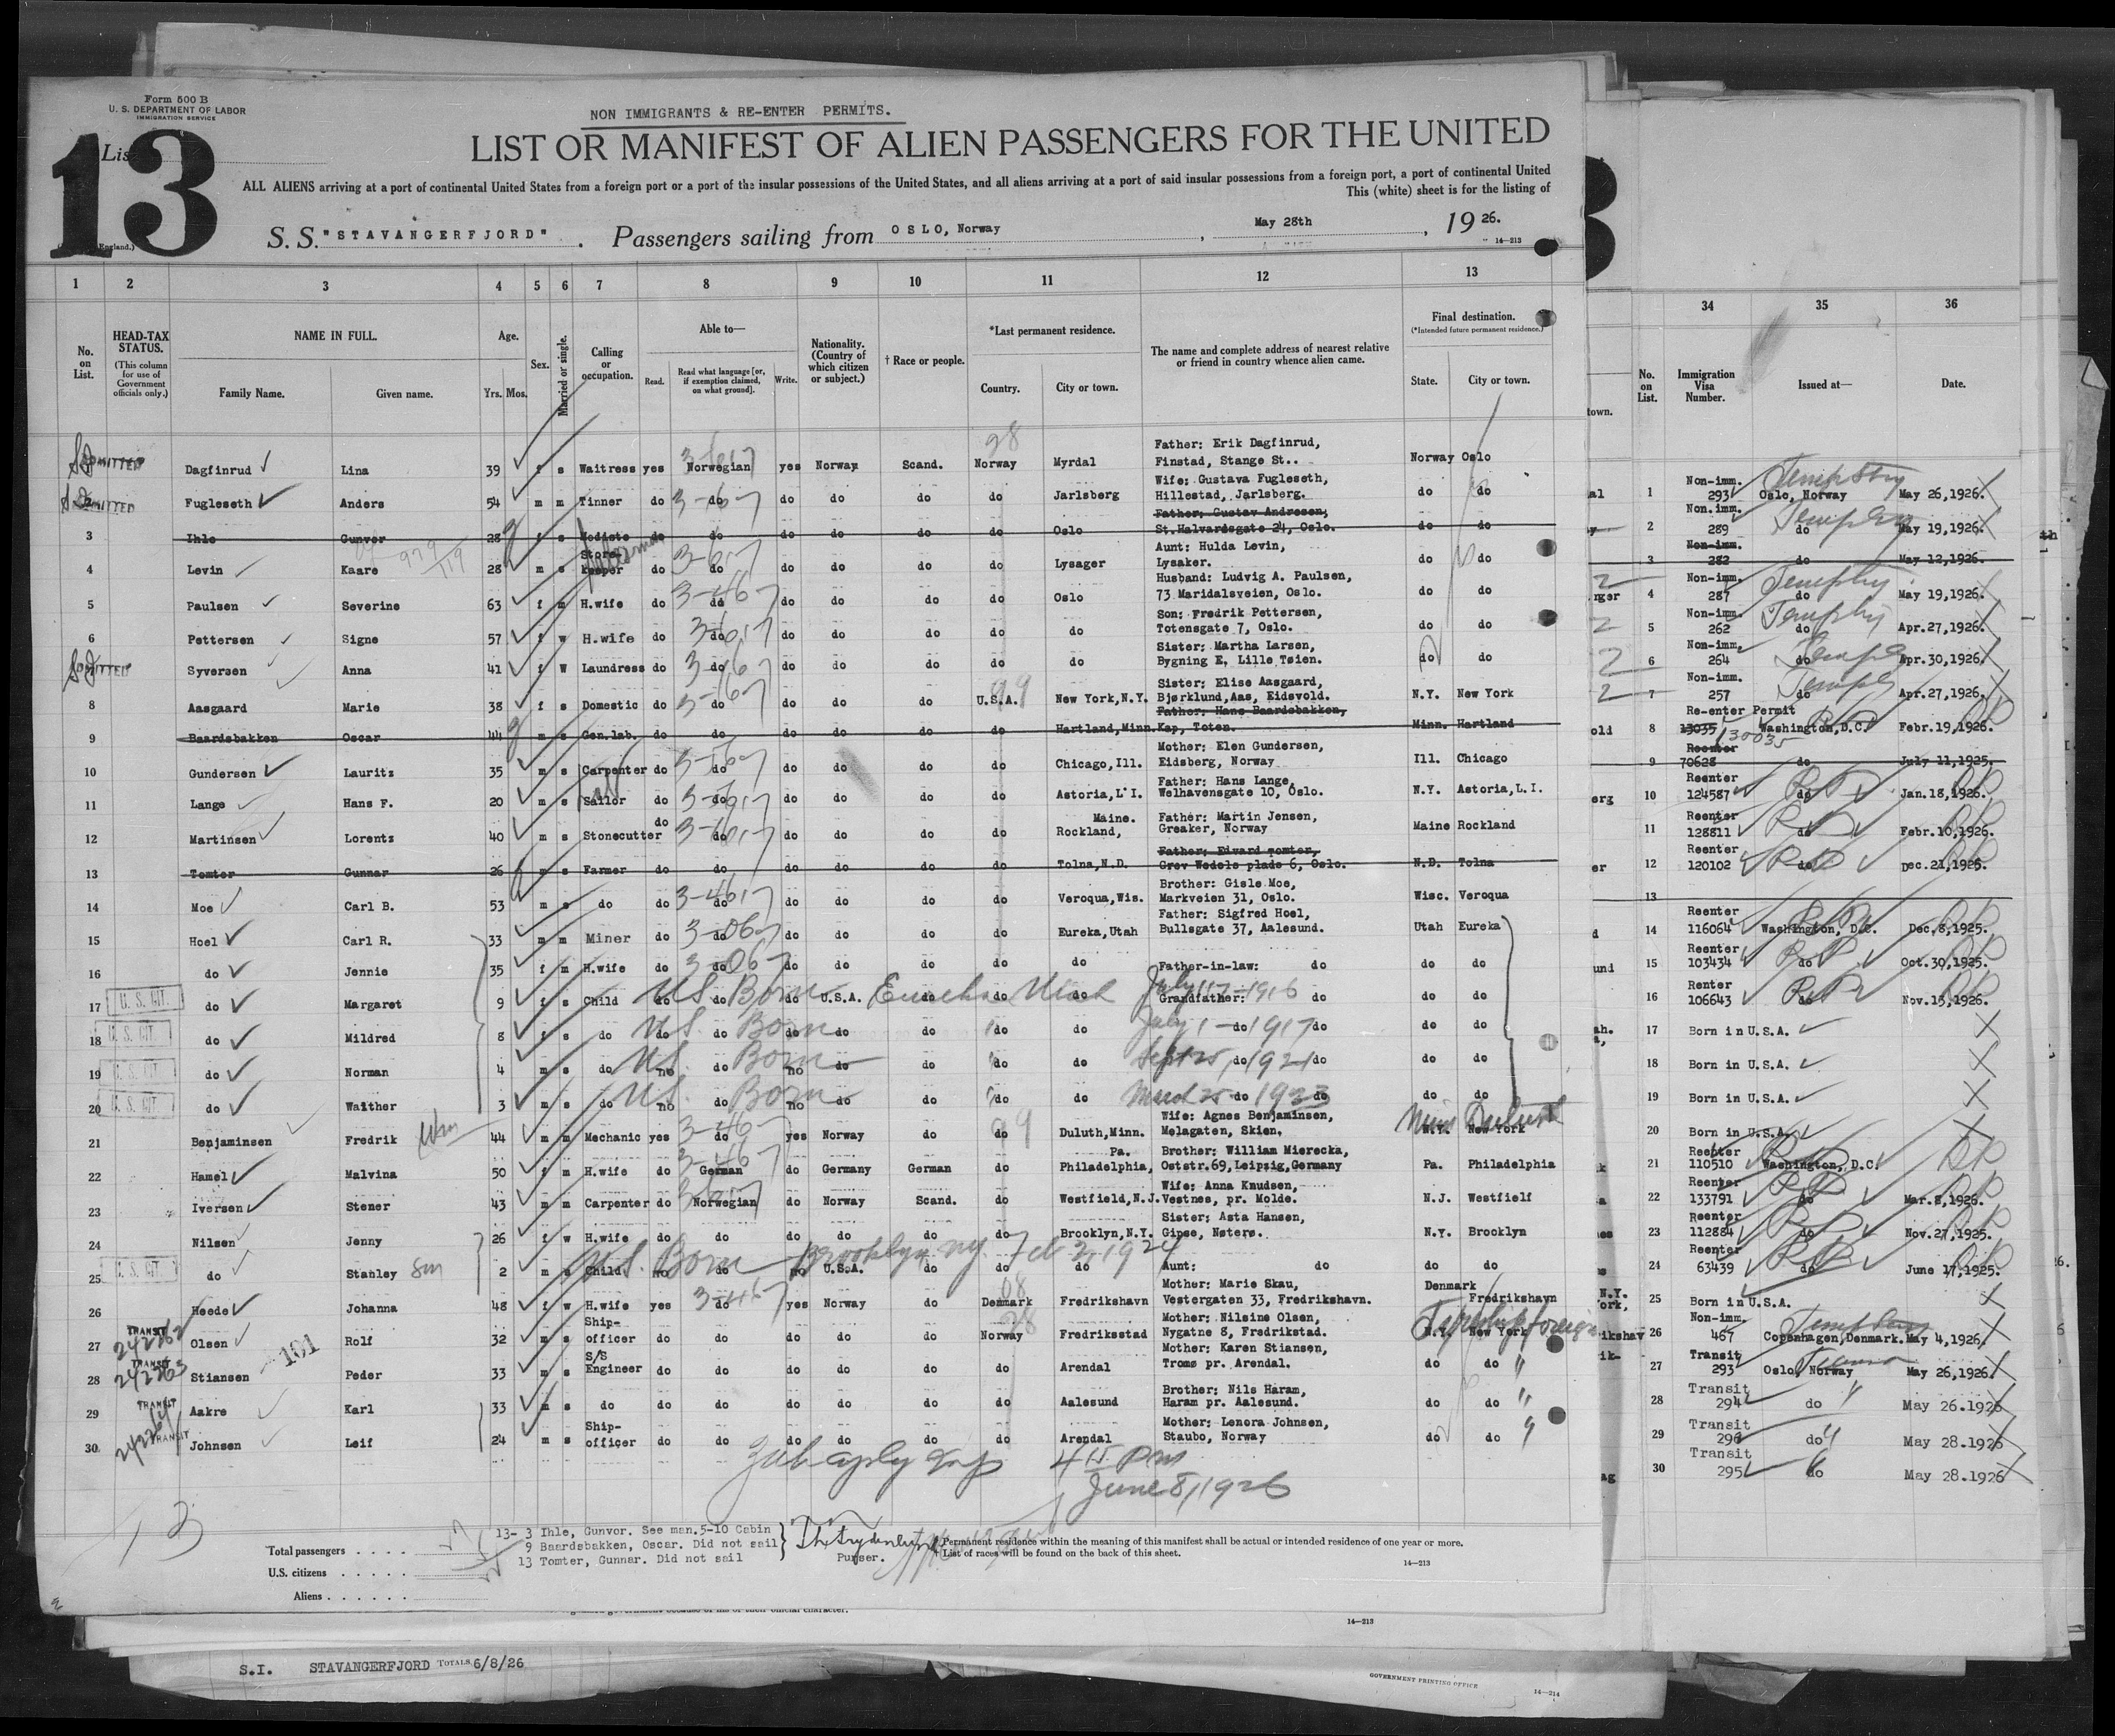 Form 500 B
U. S. DEPARTMENT OF LABOR
IMMIGRATION SERVICE
NON IMMIGRANTS & RE-ENTER PERMITS.
13
List
LIST OR MANIFEST OF ALIEN PASSENGERS FOR THE UNITED
ALL ALIENS arriving at a port of continental United States from a foreign port or a port of the insular possessions of the United States, and all aliens arriving at a port of said insular possessions from a foreign port, a port of continental United
This (white) sheet is for the listing of
S. S. "STAVANGERFJORD" . Passengers sailing from OSLO, Norway , May 28th , 1926.
14—213
1 2 3 4 5 6 7 8 9 10 11 12 13
No. on List.
HEAD-TAX STATUS. (This column for use of Government officials only.)
NAME IN FULL. Family Name. Given name.
Age. Yrs. Mos.
Sex.
Married or single.
Calling or occupation.
Able to— Read. Read what language [or, if exemption claimed, on what ground]. Write.
Nationality. (Country of which citizen or subject.)
† Race or people.
*Last permanent residence. Country. City or town.
The name and complete address of nearest relative or friend in country whence alien came.
Final destination. (*Intended future permanent residence.) State. City or town.
ADMITTED Dagfinrud Lina 39 f s Waitress yes Norwegian yes Norway Scand. Norway Myrdal Father: Erik Dagfinrud, Finstad, Stange St.. Norway Oslo
Fugleseth Anders 54 m m Tinner do do do do do do Jarlsberg Wife: Gustava Fugleseth, Hillestad, Jarlsberg. do do
3 Ihle Gunvor 28 f s Modiste do do do do do do Oslo Father: Gustav Andresen, St.Halvardsgate 24, Oslo. do do
4 Levin Kaare 28 m s Store-keeper do do do do do do Lysager Aunt: Hulda Levin, Lysaker. do do
5 Paulsen Severine 63 f m H.wife do do do do do do Oslo Husband: Ludvig A. Paulsen, 73 Maridalsveien, Oslo. do do
6 Pettersen Signe 57 f w H.wife do do do do do do do Son: Fredrik Pettersen, Totensgate 7, Oslo. do do
Syversen Anna 41 f W Laundress do do do do do do do Sister: Martha Larsen, Bygning E, Lille Tøien. do do
8 Aasgaard Marie 38 f s Domestic do do do do do U.S.A. New York,N.Y. Sister: Elise Aasgaard, Bjørklund,Aas, Eidsvold. N.Y. New York
9 Baardsbakken Oscar 44 m s Gen.lab. do do do do do do Hartland,Minn. Father: Hans Baardsbakken, Kap, Toten. Minn. Hartland
10 Gundersen Lauritz 35 m s Carpenter do do do do do do Chicago,Ill. Mother: Elen Gundersen, Eidsberg, Norway Ill. Chicago
11 Lange Hans F. 20 m s Sailor do do do do do do Astoria,L.I. Father: Hans Lange, Welhavensgate 10, Oslo. N.Y. Astoria,L.I.
12 Martinsen Lorentz 40 m s Stonecutter do do do do do do Rockland, Maine. Father: Martin Jensen, Greaker, Norway Maine Rockland
13 Tomter Gunnar 26 m s Farmer do do do do do do Tolna,N.D. Father: Edward Tomter, Grev Wedels plads 6, Oslo. N.D. Tolna
14 Moe Carl B. 53 m s do do do do do do do Veroqua,Wis. Brother: Gisle Moe, Markveien 31, Oslo. Wisc. Veroqua
15 Hoel Carl R. 33 m m Miner do do do do do do Eureka,Utah Father: Sigfred Hoel, Bullsgate 37, Aalesund. Utah Eureka
16 do Jennie 35 f m H.wife do do do do do do do Father-in-law: do do do
17 U. S. CIT. do Margaret 9 f s Child do do do U.S.A. do do do Grandfather: do do do
US Born Eureka Utah July 17-1916
18 U. S. CIT. do Mildred 8 f s do do do do do do do do do do do do
U.S. Born July 1 1917
19 U. S. CIT. do Norman 4 m s do no do no do do do do do do do do
U.S. Born Sept 25, 1921
20 U. S. CIT. do Walther 3 m s do no do no do do do do do do do do
U.S. Born March 25 1923
21 Benjaminsen Fredrik 44 m m Mechanic yes do yes Norway do do Duluth,Minn. Wife: Agnes Benjaminsen, Melagaten, Skien. N.Y. New York Minn Duluth
22 Hamel Malvina 50 f m H.wife do German do Germany German do Philadelphia, Pa. Brother: William Mierecka, Oststr.69,Leipzig,Germany Pa. Philadelphia
23 Iversen Stener 43 m m Carpenter do Norwegian do Norway Scand. do Westfield,N.J. Wife: Anna Knudsen, Vestnes, pr. Molde. N.J. Westfielf
24 Nilsen Jenny 26 f w H.wife do do do do do do Brooklyn,N.Y. Sister: Asta Hansen, Gipsø, Nøterø. N.Y. Brooklyn
25 U. S. CIT. do Stanley 2 m s Child no do no U.S.A. do do do Aunt: do do do
U.S. Born Brooklyn NY. Feb 3, 1924
26 Heede Johanna 48 f w H.wife yes do yes Norway do Denmark Fredrikshavn Mother: Marie Skau, Vestergaten 33, Fredrikshavn. Denmark Fredrikshavn
27 TRANSIT 242262 Olsen Rolf 32 m s Ship-officer do do do do do Norway Fredriksstad Mother: Nilsine Olsen, Nygatne 8, Fredrikstad. N.Y. New York
28 TRANSIT 242263 Stiansen 101 Peder 33 m s S/S Engineer do do do do do do Arendal Mother: Karen Stiansen, Tromø pr. Arendal. do do "
29 TRANSIT Aakre Karl 33 m s do do do do do do do Aalesund Brother: Nils Haram, Haram pr. Aalesund. do do "
30 TRANSIT Johnsen Leif 24 m s Ship-officer do do do do do do Arendal Mother: Lenora Johnsen, Staubo, Norway do do "
June 8, 1926
13
Total passengers . . . .
U.S. citizens . . . . .
Aliens . . . . . .
13- 3 Ihle, Gunvor. See man.5-10 Cabin
9 Baardsbakken, Oscar. Did not sail
13 Tomter, Gunnar. Did not sail
Purser.
Permanent residence within the meaning of this manifest shall be actual or intended residence of one year or more.
† List of races will be found on the back of this sheet.
14—213
34 35 36
No. on List. Immigration Visa Number. Issued at— Date.
1 Non-imm. 293 Oslo, Norway May 26,1926.
2 Non.imm. 289 do May 19,1926.
3 Non-imm. 282 do May 12,1926
4 Non-imm. 287 do May 19,1926.
5 Non-imm. 262 do Apr.27,1926.
6 Non-imm. 264 do Apr.30,1926.
7 Non-imm. 257 do Apr.27,1926.
8 Re-enter Permit 13035 130035 Washington,D.C. Febr.19,1926.
9 Reenter 70628 do July 11,1925.
10 Reenter 124587 do Jan.18,1926.
11 Reenter 128811 do Febr.10,1926.
12 Reenter 120102 do Dec.21,1925.
13
14 Reenter 116064 Washington, D.C. Dec.8,1925.
15 Reenter 103434 do Oct.30,1925.
16 Renter 106643 do Nov.15,1926.
17 Born in U.S.A.
18 Born in U.S.A.
19 Born in U.S.A.
20 Born in U.S.A.
21 Reenter 110510 Washington, D.C.
22 Reenter 133791 do Mar.8,1926.
23 Reenter 112884 do Nov.27,1925.
24 Reenter 63439 do June 17,1925.
25 Born in U.S.A.
26 Non-imm. 467 Copenhagen,Denmark. May 4,1926
27 Transit 293 Oslo, Norway May 26,1926.
28 Transit 294 do May 26.1926
29 Transit 296 do May 28.1926
30 Transit 295 do May 28.1926
14—213
S.I. STAVANGERFJORD TOTALS 6/8/26
GOVERNMENT PRINTING OFFICE
14—214